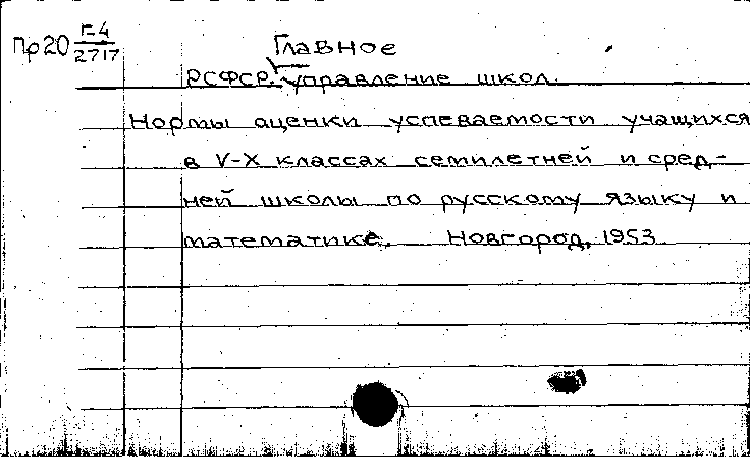 Пр20 Г-4/2717
Главное
РСФСР. управление школ.
Нормы оценки успеваемости учащихся
в V-X классах семилетней и сред-
ней школы по русскому языку и
математике. Новгород, 1953